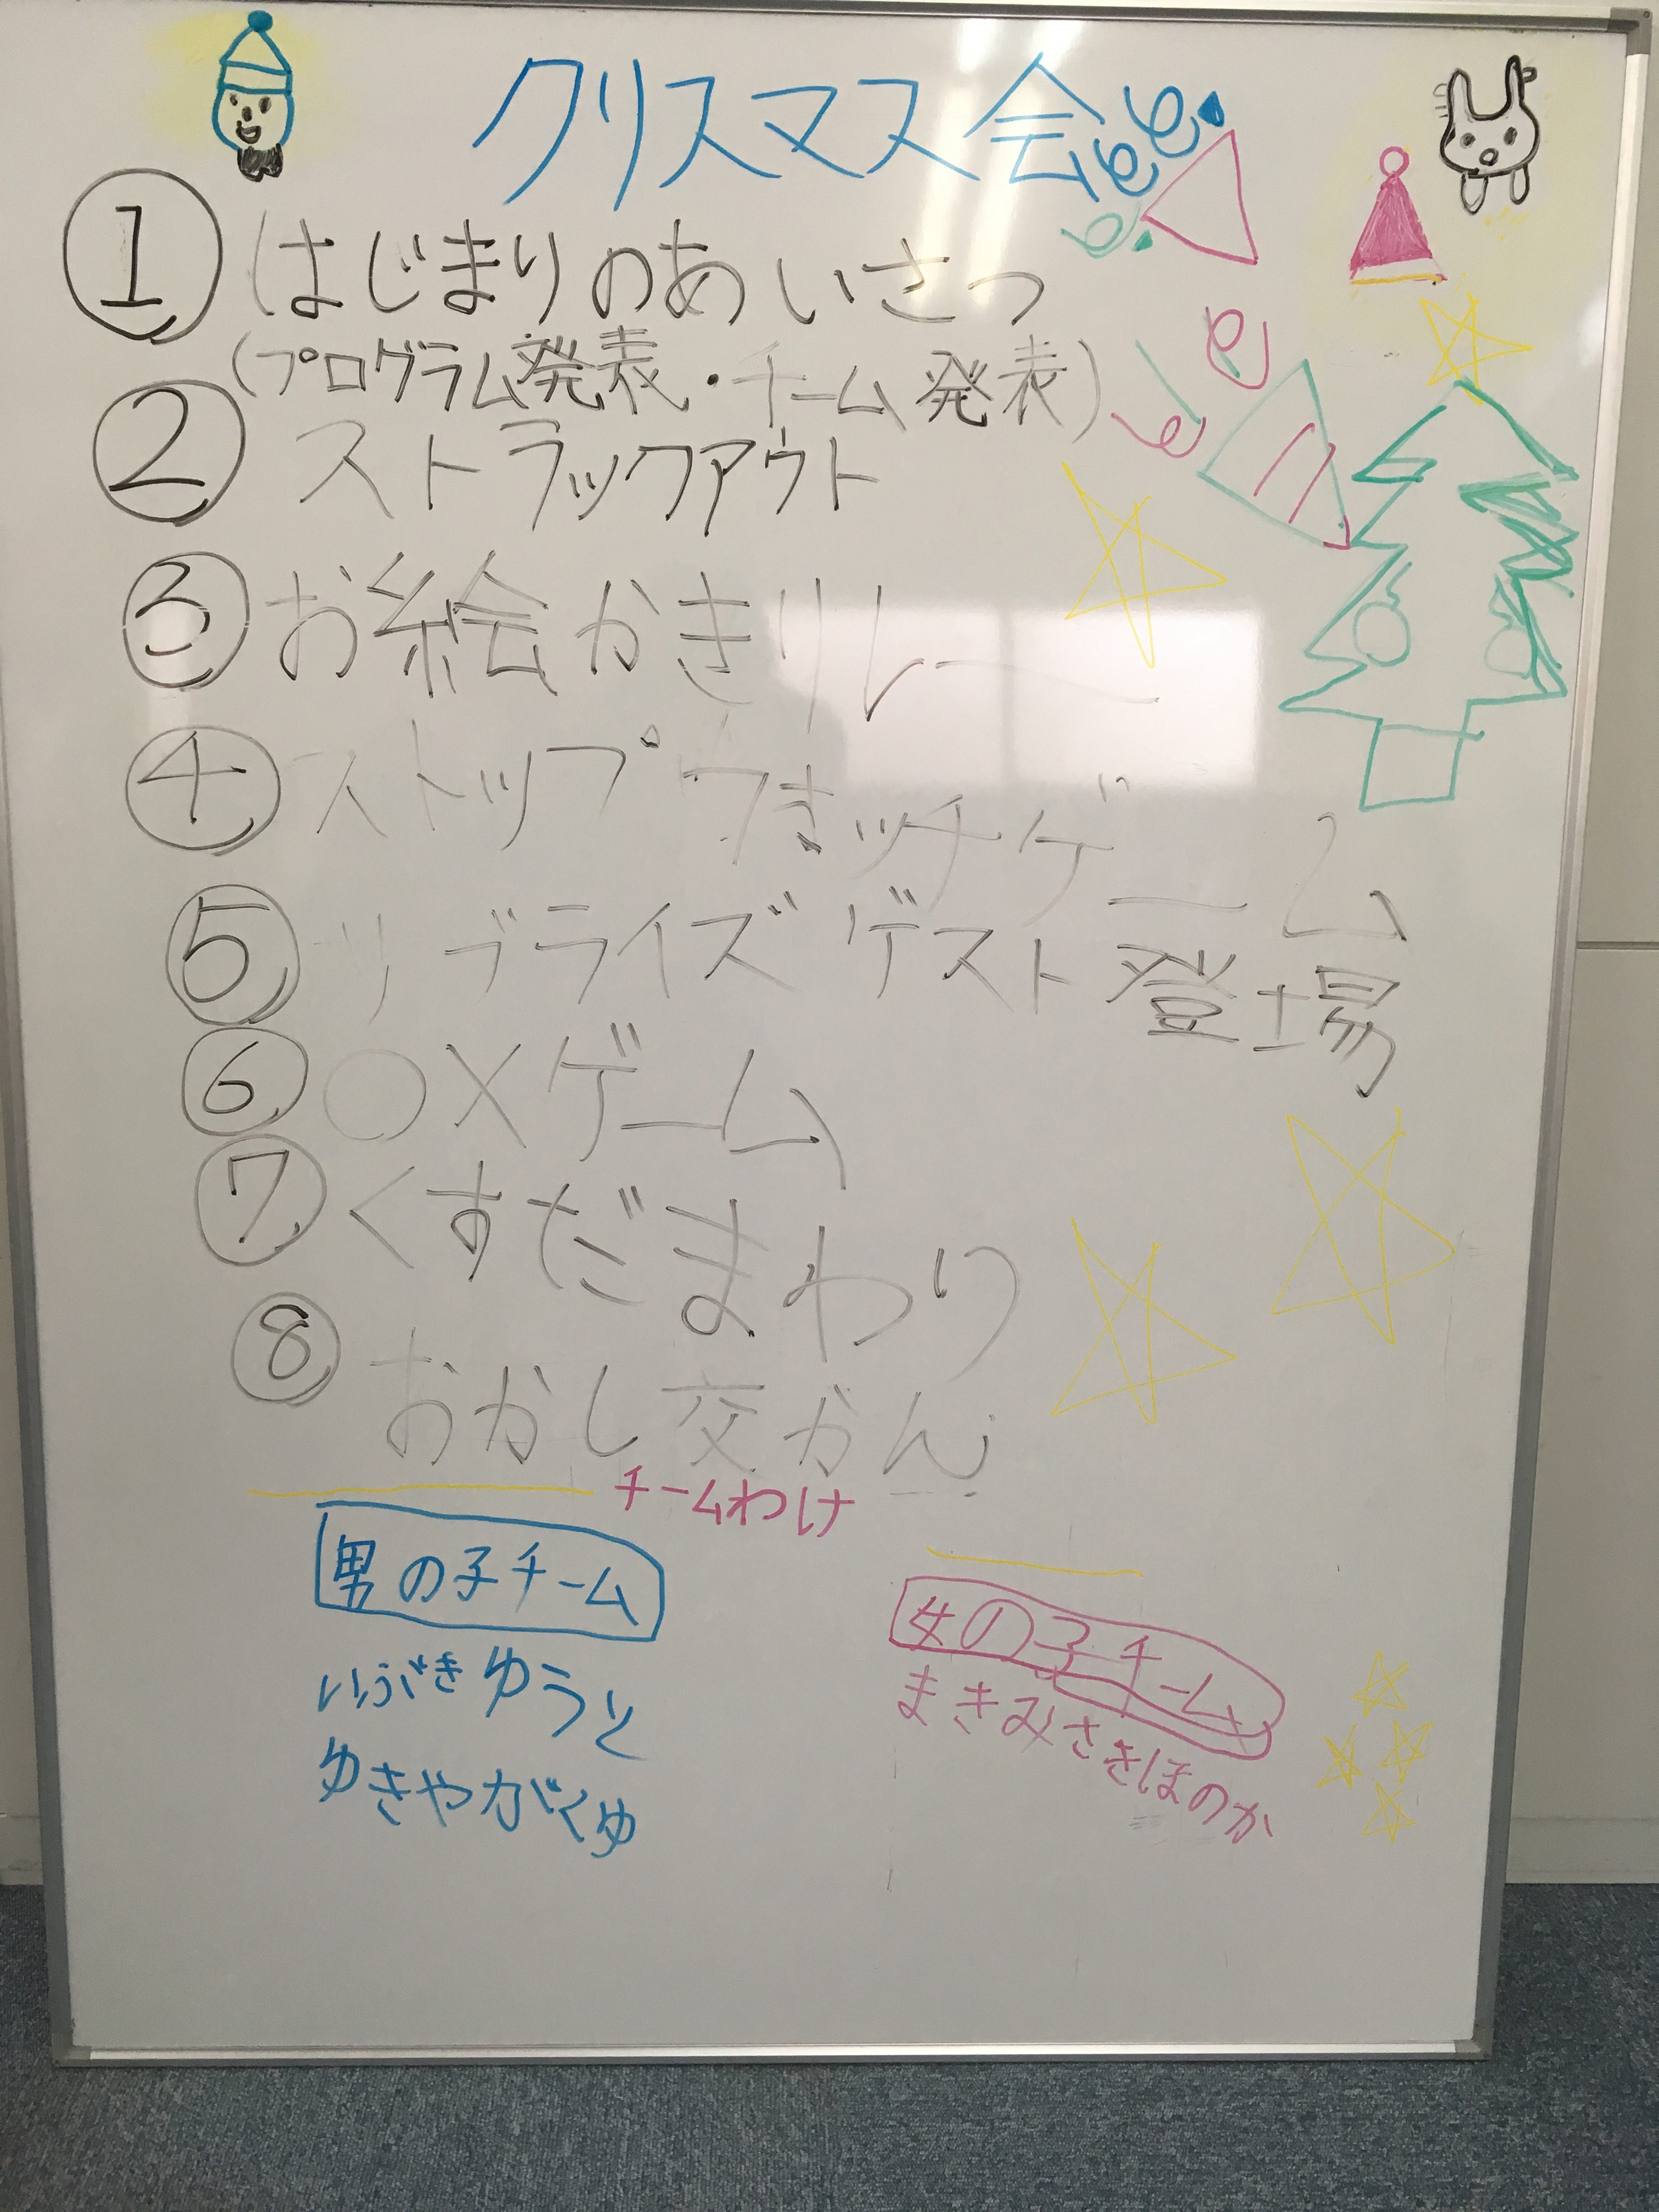 クリスマス会
① はじまりのあいさつ
(プログラム発表・チーム発表)
② ストラックアウト
③ お絵かきリレー
④ ストップウォッチゲーム
⑤ サプライズゲスト登場
⑥ ○×ゲーム
⑦ くすだまわり
⑧ おかし交かん
チームわけ
男の子チーム
いぶき ゆうと
ゆきや がくゆ
女の子チーム
まき みさき ほのか